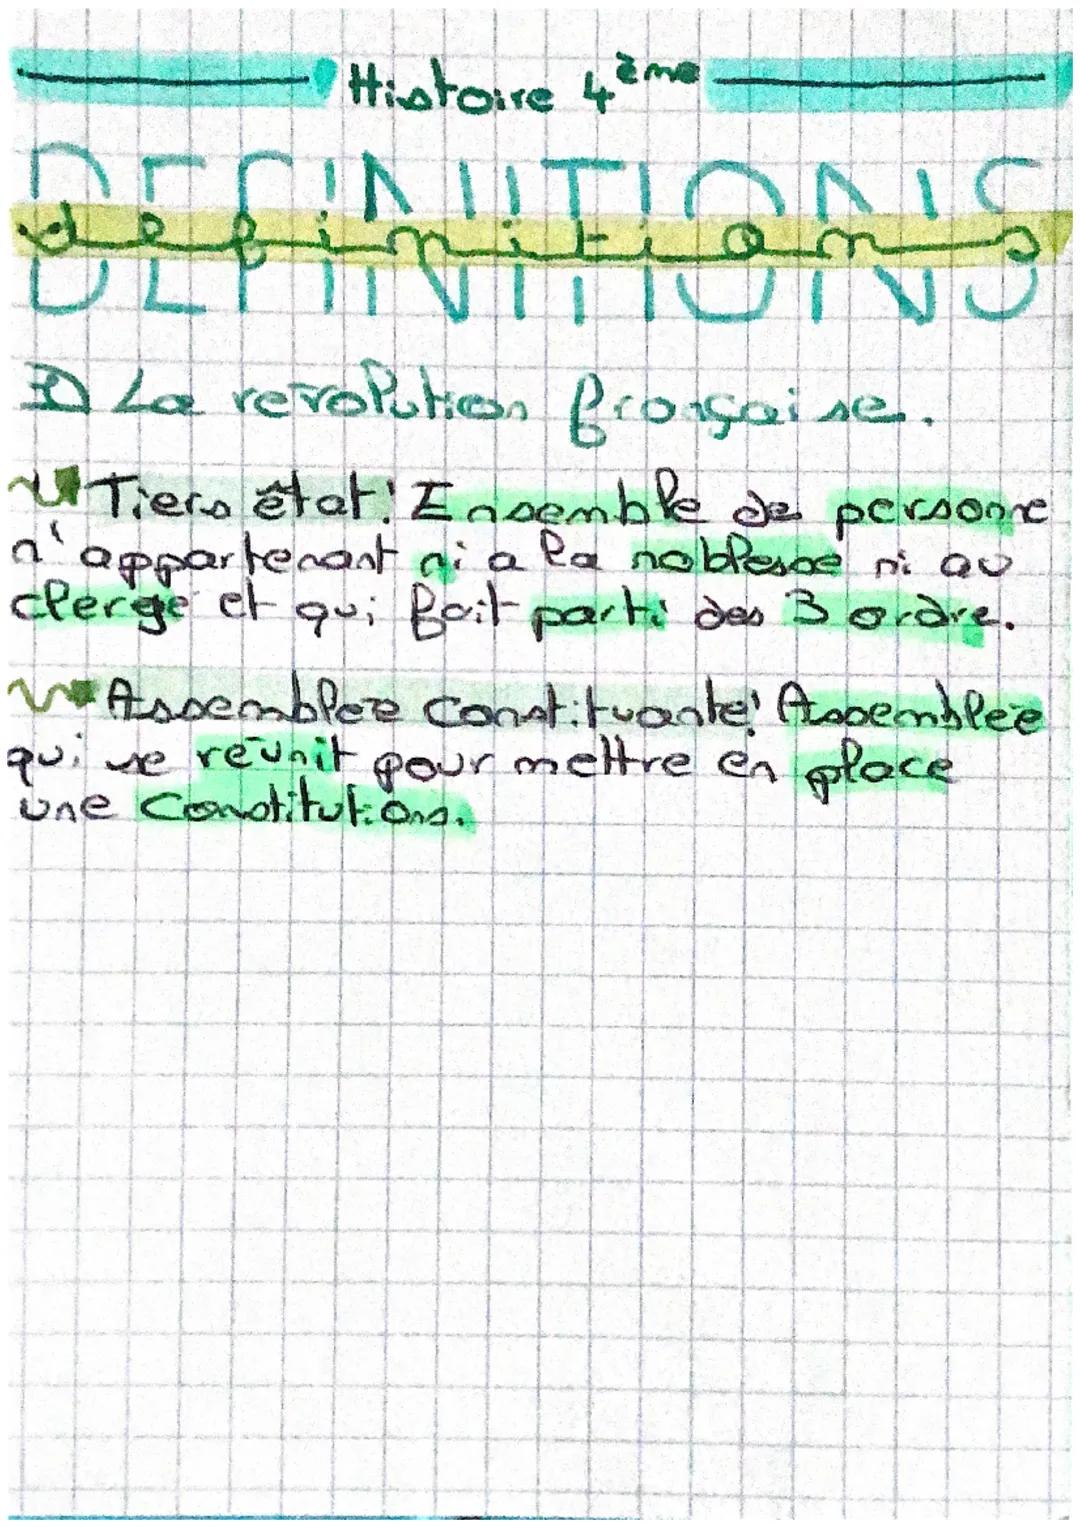 Histoire 4ème
DEFINITIONS
definitions
3) La révolution française.
Tiers état: Ensemble de personne
n'appartenant ni a la noblesse ni au
clergé et qui fait parti des 3 ordre.
Assemblée Constituante: Assemblée
qui se réunit pour mettre en place
une Constitutions.